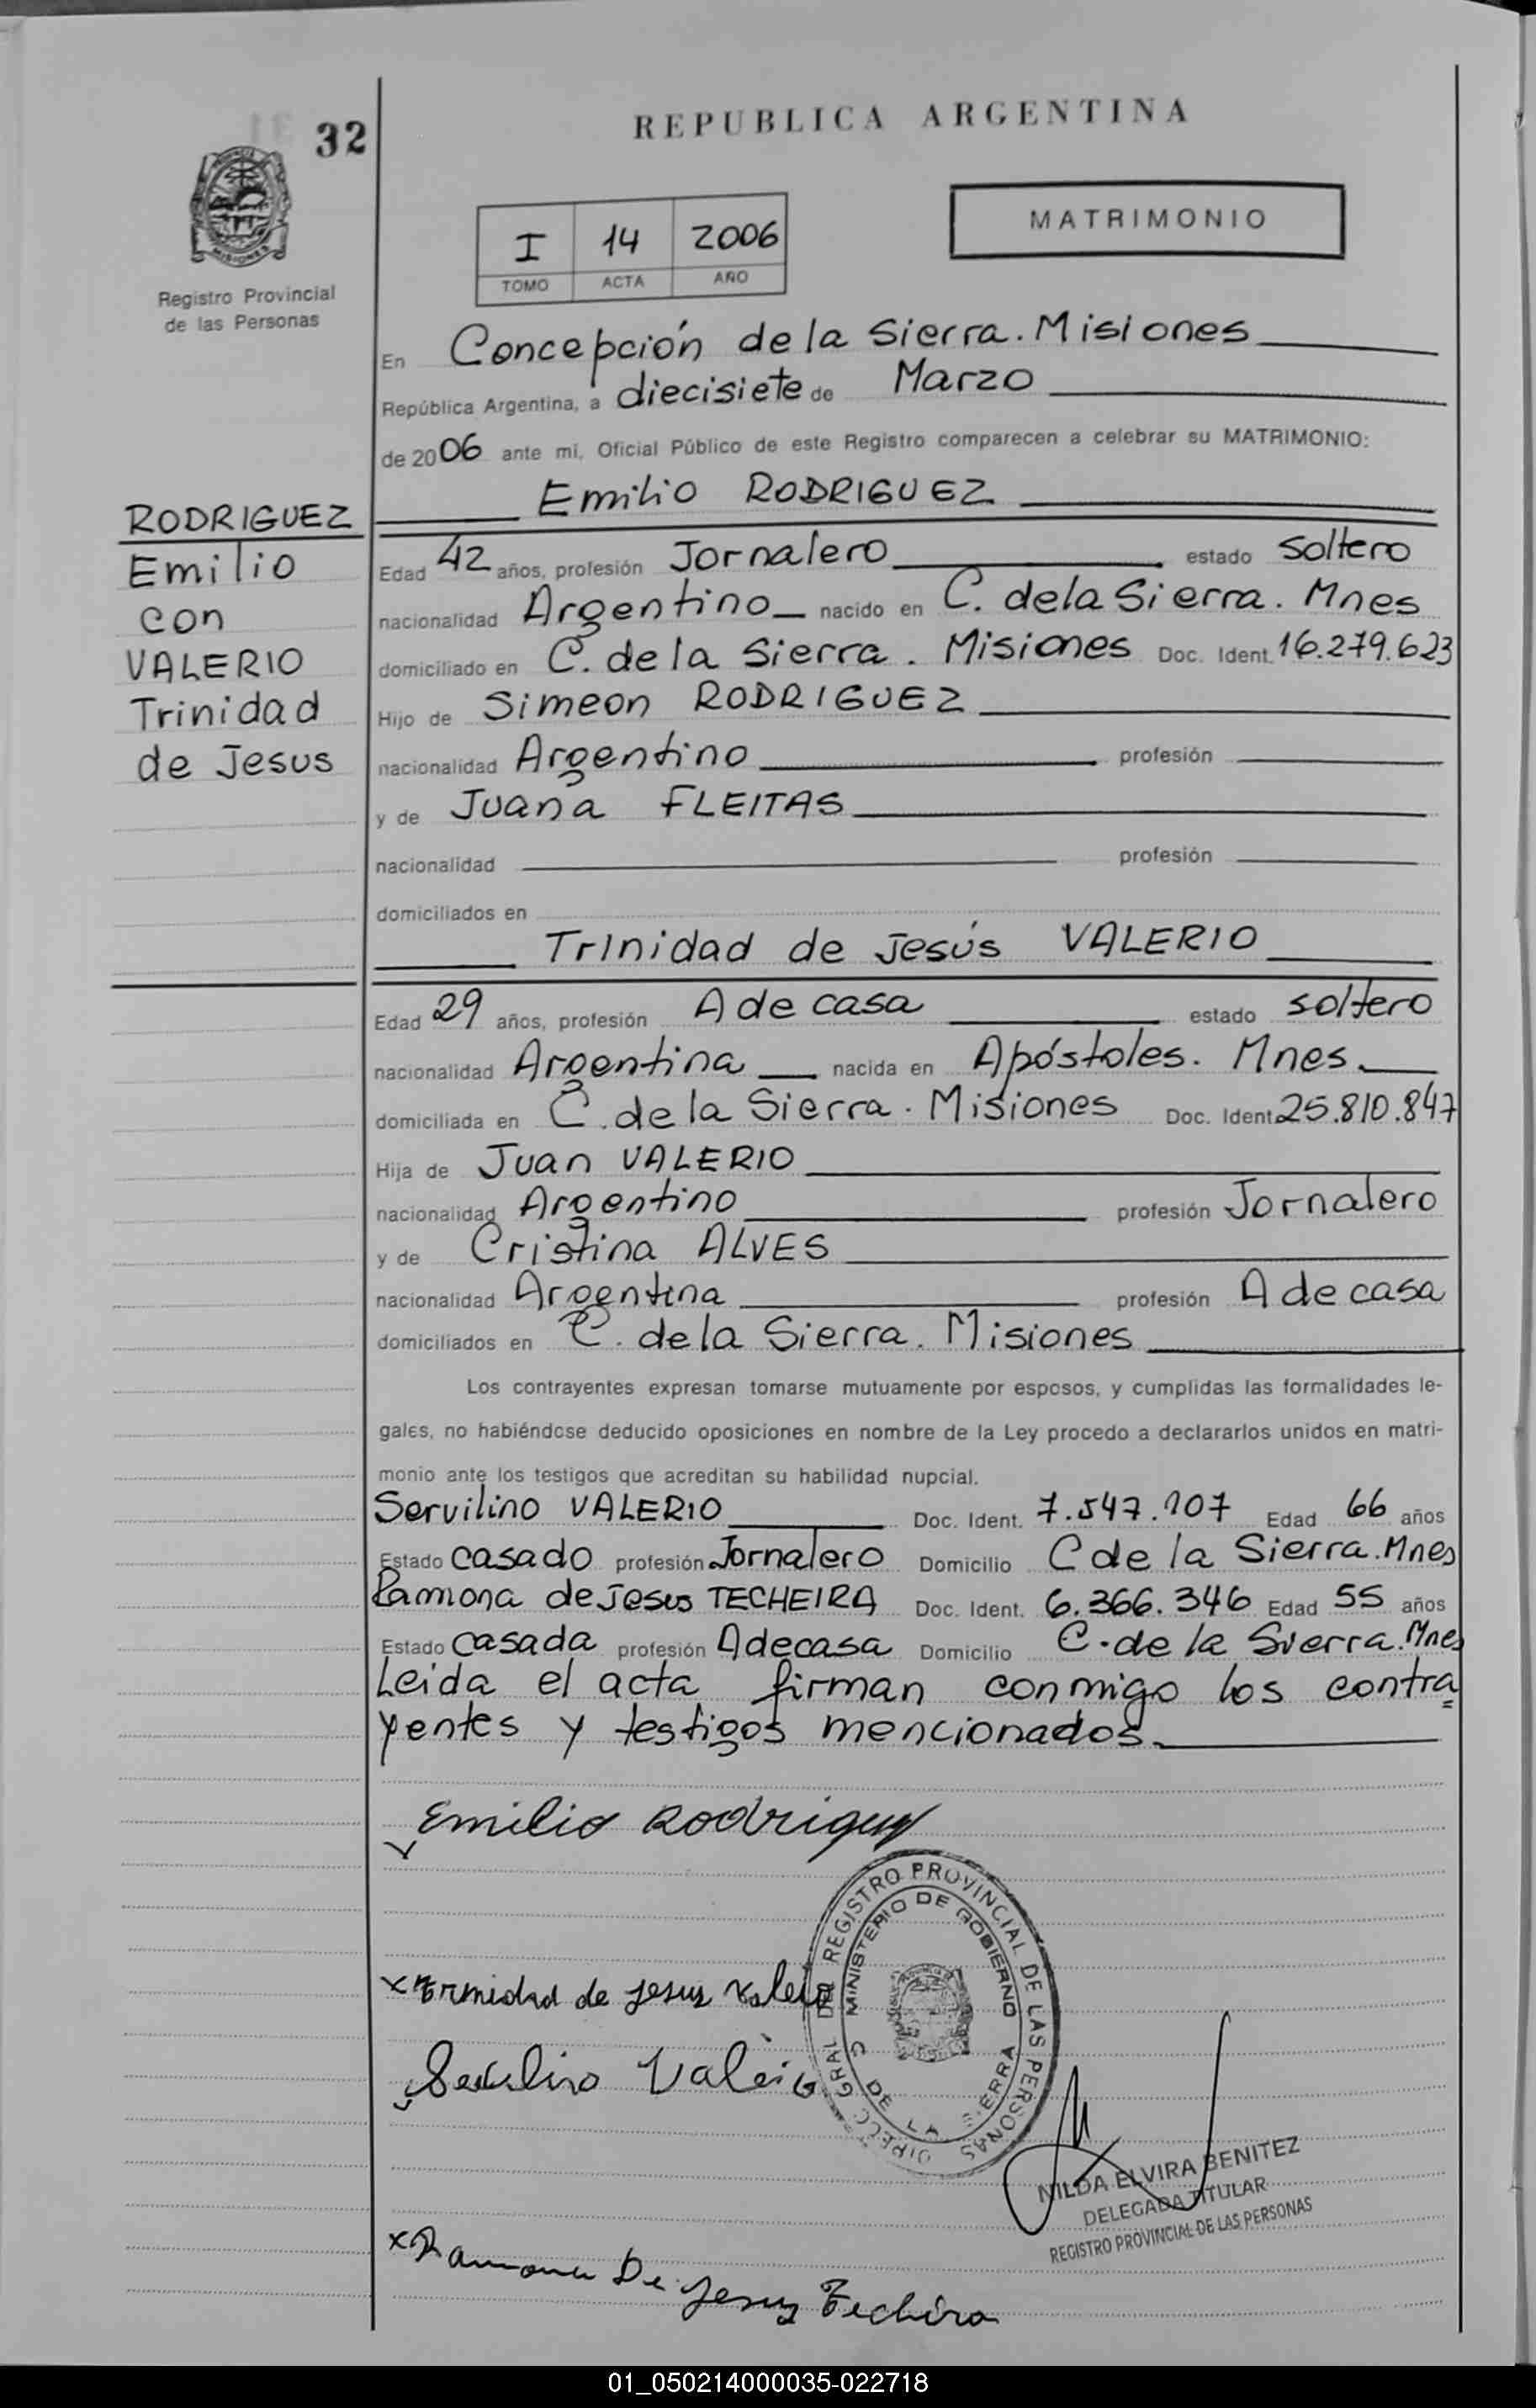 32
REPUBLICA ARGENTINA
MATRIMONIO
I 14 2006
TOMO ACTA AÑO
MISIONES
Registro Provincial
de las Personas
En Concepción de la Sierra. Misiones
República Argentina, a diecisiete de Marzo
de 2006 ante mi, Oficial Público de este Registro comparecen a celebrar su MATRIMONIO:
Emilio RODRIGUEZ
RODRIGUEZ
Emilio
con
VALERIO
Trinidad
de Jesus
Edad 42 años, profesión Jornalero estado soltero
nacionalidad Argentino nacido en C. de la Sierra. Mnes
domiciliado en C. de la Sierra. Misiones Doc. Ident. 16.279.623
Hijo de Simeon RODRIGUEZ
nacionalidad Argentino profesión
y de Juana FLEITAS
nacionalidad profesión
domiciliados en
Trinidad de Jesús VALERIO
Edad 29 años, profesión A de casa estado soltero
nacionalidad Argentina nacida en Apóstoles. Mnes.
domiciliada en C. de la Sierra. Misiones Doc. Ident. 25.810.847
Hija de Juan VALERIO
nacionalidad Argentino profesión Jornalero
y de Cristina ALVES
nacionalidad Argentina profesión A de casa
domiciliados en C. de la Sierra. Misiones
Los contrayentes expresan tomarse mutuamente por esposos, y cumplidas las formalidades le-
gales, no habiéndose deducido oposiciones en nombre de la Ley procedo a declararlos unidos en matri-
monio ante los testigos que acreditan su habilidad nupcial.
Servilino VALERIO Doc. Ident. 7.547.107 Edad 66 años
Estado casado profesión Jornalero Domicilio C de la Sierra. Mnes
Ramona de Jesus TECHEIRA Doc. Ident. 6.366.346 Edad 55 años
Estado casada profesión A de casa Domicilio C. de la Sierra. Mnes
Leida el acta firman conmigo los contra=
yentes y testigos mencionados.
Emilio Rodriguez
DIRECC GRAL DEL REGISTRO PROVINCIAL DE LAS PERSONAS
MINISTERIO DE GOBIERNO
C DE LA SIERRA
x de Jesus Valerio
Valerio
NILDA ELVIRA BENITEZ
DELEGADA TITULAR
REGISTRO PROVINCIAL DE LAS PERSONAS
x Ramona De Jesus Techira
01_050214000035-022718